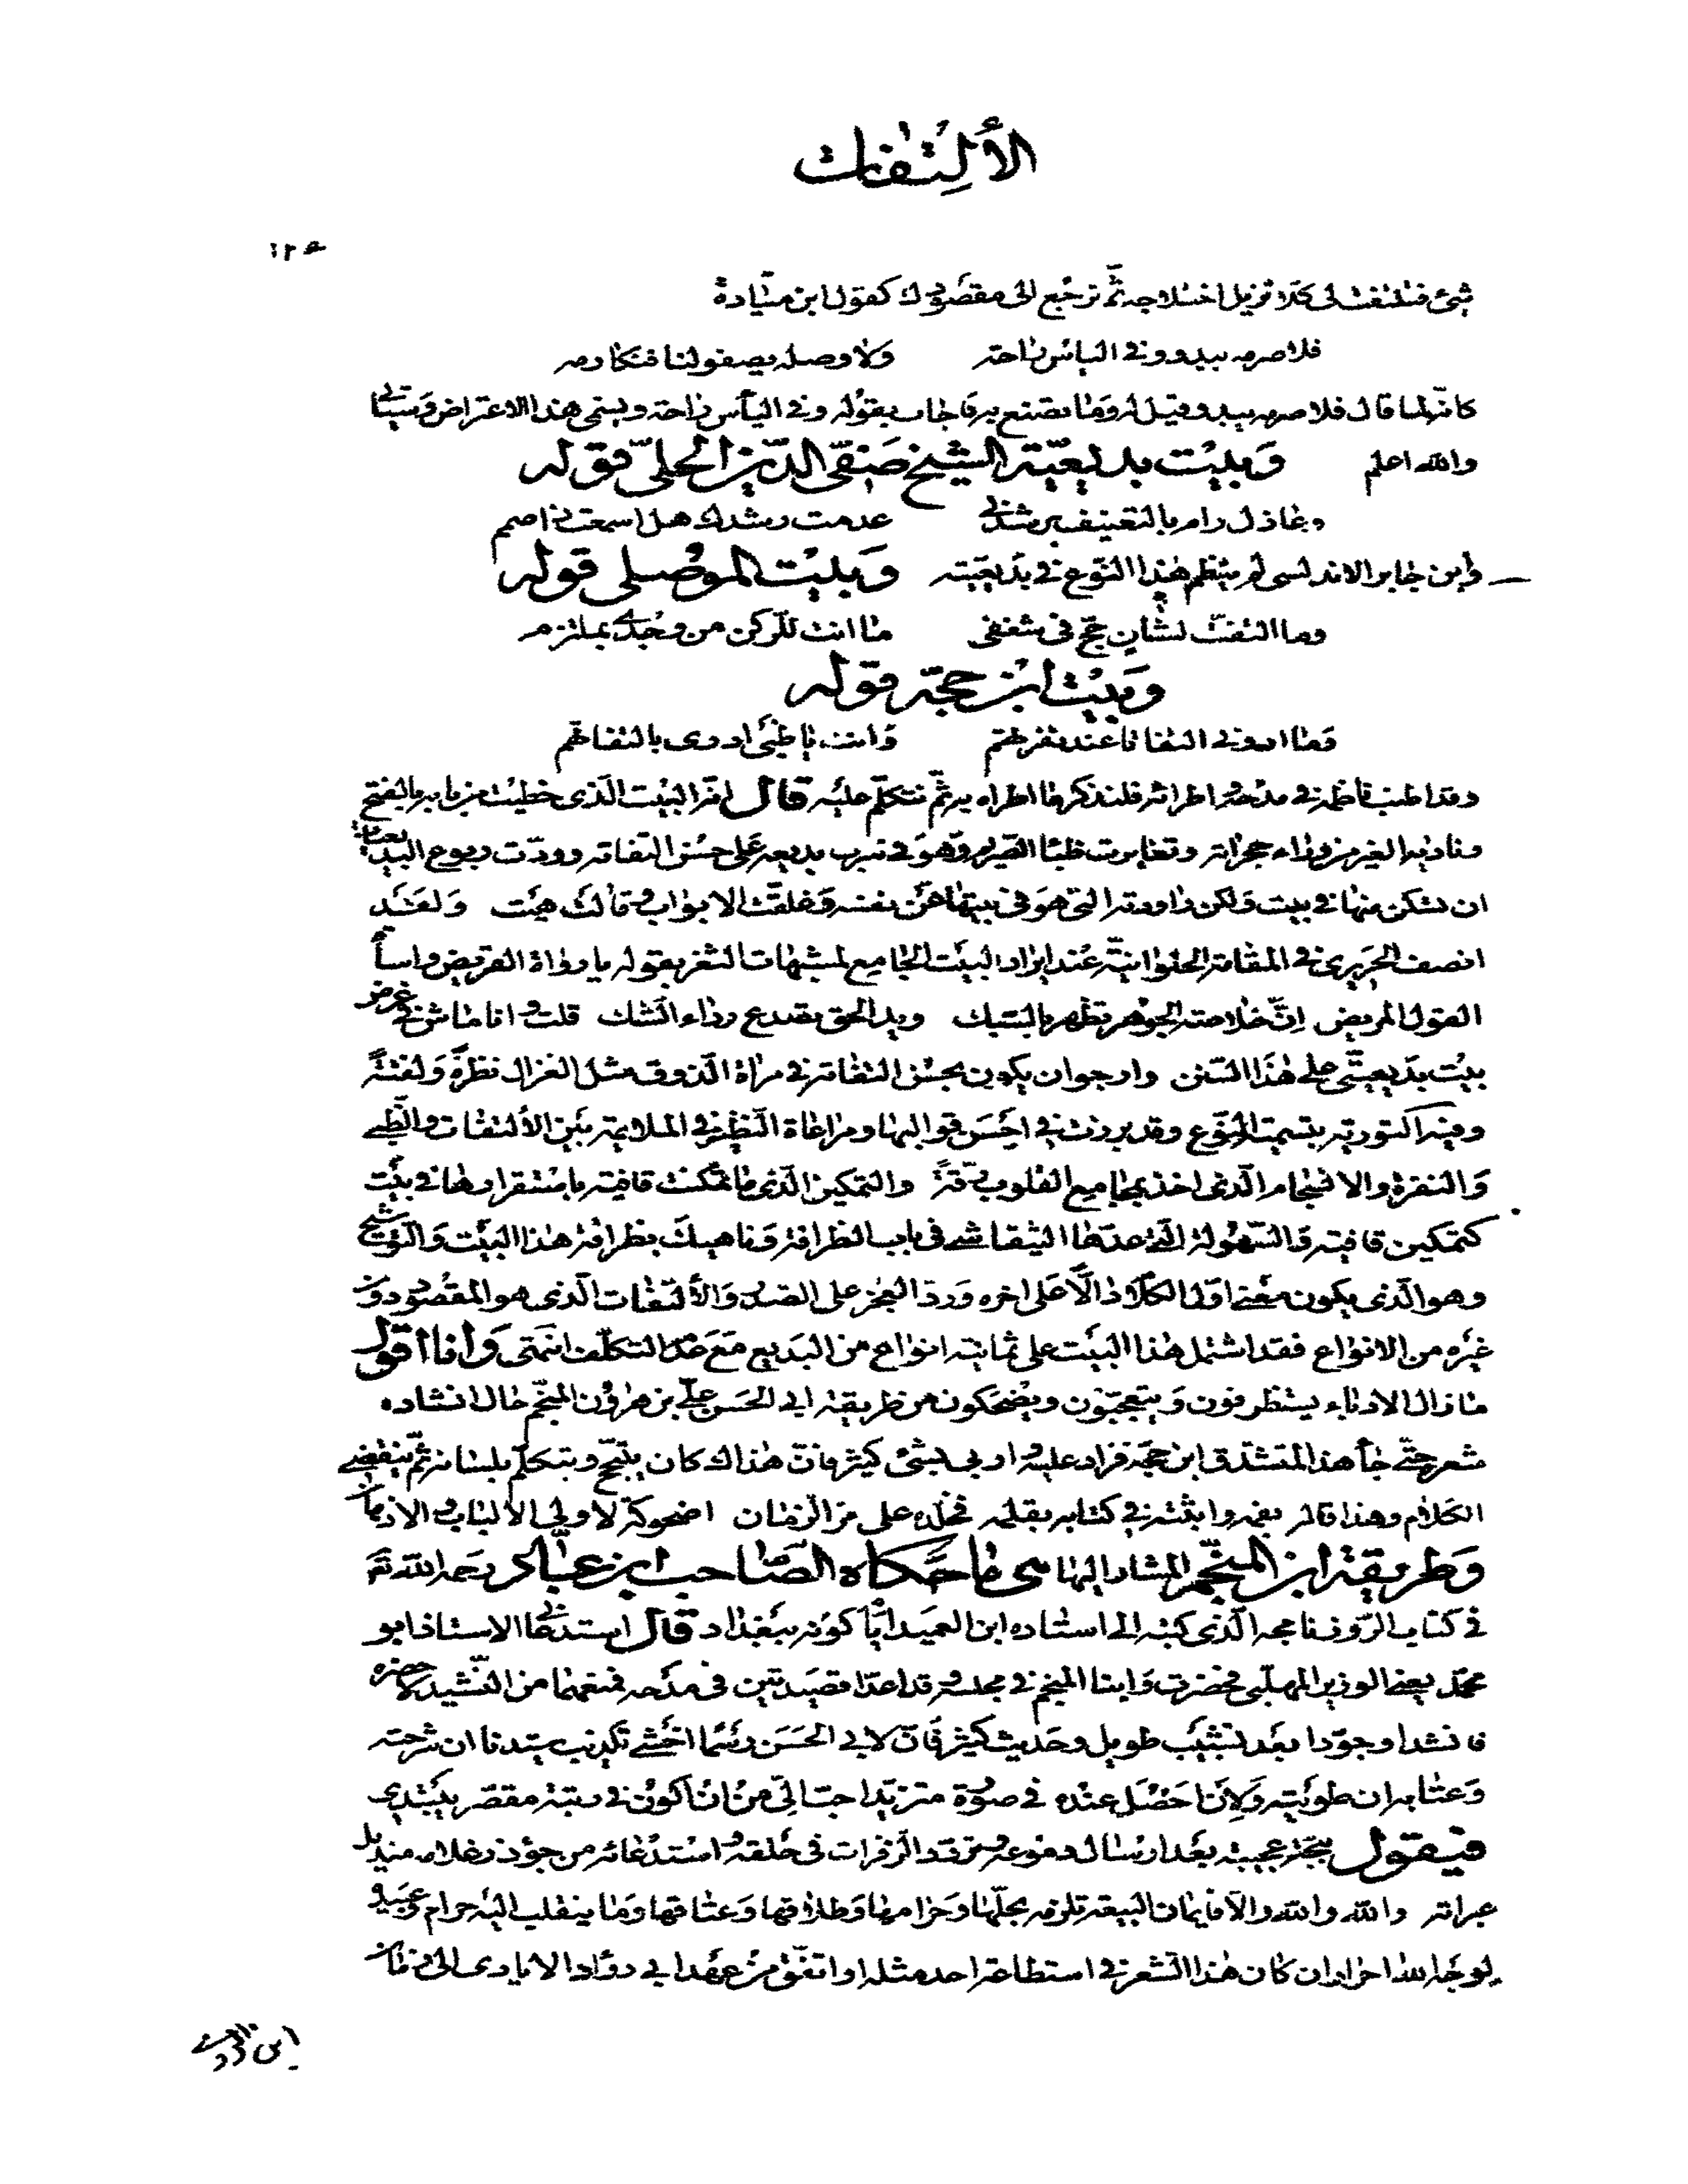 الألتفات
١٢٤
شئ فتلتفت الى كلام تزيل اختلاجه ثم ترجع الى مقصودك كقول ابن ميادة
فلا صرمه يبدو وفي اليأس راحة ولا وصله يصفو لنا فنكارمه
كانه لما قال فلا صرمه يبدو قيل له وما تصنع به فاجاب بقوله وفي اليأس راحة ويسمى هذا الاعتراض وسيأتي
والله اعلم وبيت بديعية الشيخ صفى الدين الحلى قوله
وعاذل رام بالتعنيف يرشدني عدمت رشدك هل اسمعت ذا صمم
وابن جابر الاندلسى لم ينظم هذا النوع في بديعيته وبيت الموصلى قوله
وما التفت لشان حج فى شغفى ما انت للركن من وجدى بملتزم
وبيت ابن حجة قوله
وما اروني التفاتا عند نفرتهم وانت يا ظبى ادرى بالتفاتهم
وقد اطنب ناظمه في مدحه واطرائه فلنذكر ما اطراه به ثم نتكلم عليه قال ان البيت الذى خطيت من بابه بالفتح
وناداني الغير من وراء حجراته وتغايرت ظبا الصريم وهو في سرب بديعه على حسن التفاته وودت ربوع البديعيات
ان تسكن منها في بيت ولكن راودته التى هو فى بيتها عن نفسه وغلقت الابواب وقالت هيت ولقد
انصف الحريرى في المقامة الحلوانية عند ايراد البيت الجامع لمشبهات الثغر بقوله يا رواة القريض واساة
القول المريض ان خلاصة الجوهر تظهر بالسبك ويد الحق تصدع رداء الشك قلت وانا ماش في غرض
بيت بديعيتى على هذا السنن وارجو ان يكون بحسن التفاته في مراة الذوق مثل الغزال نظرة ولفتة
وفيه التورية بتسمية النوع وقد برزت في احسن قوالبها ومراعاة النظير في الملايمة بين الألتفات والظبى
والنفرة والانسجام الذى اخذ بمجاميع القلوب رقة والتمكين الذى ما تمكنت قافية باستقرارها في بيت
كتمكين قافيته والسهولة التي عدها التيفاشى فى باب الظرافة وناهيك بظرافة هذا البيت والتوشيح
وهو الذى يكون معنى اول الكلام دالا على اخره ورد العجز على الصدر والألتفات الذى هو المقصود دون
غيره من الانواع فقد اشتمل هذا البيت على ثمانية انواع من البديع مع عدم التكلف انتهى وانا اقول
ما زال الادباء يستظرفون ويتعجبون ويضحكون من طريقة ابي الحسن على بن هرون المنجم حال انشاده
شعره حتى جاء هذا المتشدق ابن حجة فزاد عليه واربى بشئ كثير فان هذاك كان يتبجح ويتكلم بلسانه ثم ينقضى
الكلام وهذا قاله بفمه واثبته في كتابه بقلمه فخلده على مر الزمان اضحوكة لاولي الالباب والاذهان
وطريقة ابن المنجم المشار اليها هى ما حكاه الصاحب ابن عباد رحمه الله تعالى
في كتاب الروزنامجه الذى كتبه الى استاده ابن العميد ايام كونه ببغداد قال استدعاني الاستاذ ابو
محمد يعنى الوزير المهلبى فحضرت وابنا المنجم في مجلسه وقد اعدا قصيدتين فى مدحه فمنعهما من النشيد لاحضره
فانشدا وجودا بعد تشبيب طويل وحديث كثير فان لابي الحسن رسما اخشى تكذيب سيدنا ان شرحته
وعتابه ان طويته ولان احصل عنده في صورة متزيد احب الى من ان اكون في رتبة مقصر يبتدى
فيقول ببحة عجيبة بعد ارسال دموعه وتردد الزفرات فى حلقه واستدعائه من جؤذر غلامه منديل
عبراته والله والله والا فايمان البيعة تلزمه بحلها وحرامها وطلاقها وعتاقها وما ينقلب اليه حرام وعبيده
لوجه الله احرار ان كان هذا الشعر في استطاعة احد مثله او اتفق من عهد ابي دؤاد الايادى الى زمان
ابن الرومى